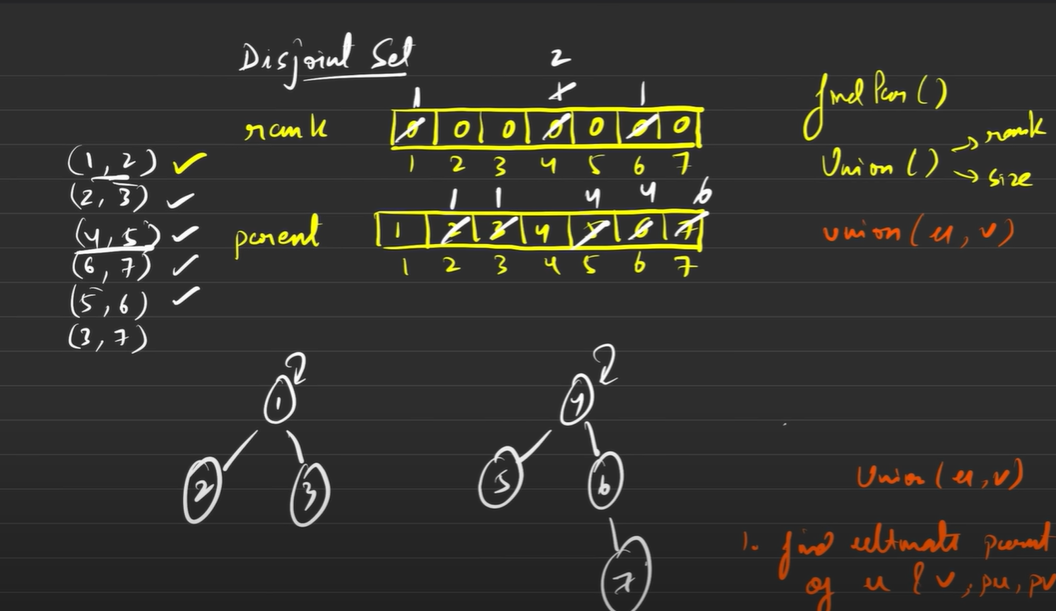 Disjoint Set
2
1 1 1
rank 0 0 0 0 0 0 0
1 2 3 4 5 6 7
1 1 4 4 6
parent 1 2 3 4 5 6 7
1 2 3 4 5 6 7
(1, 2) ✓
(2, 3) ✓
(4, 5) ✓
(6, 7) ✓
(5, 6) ✓
(3, 7)
findPar()
Union() → rank
→ size
union(u, v)
1
2 3
4
5 6
7
Union(u, v)
1. find ultimate parent
of u & v, pu, pv